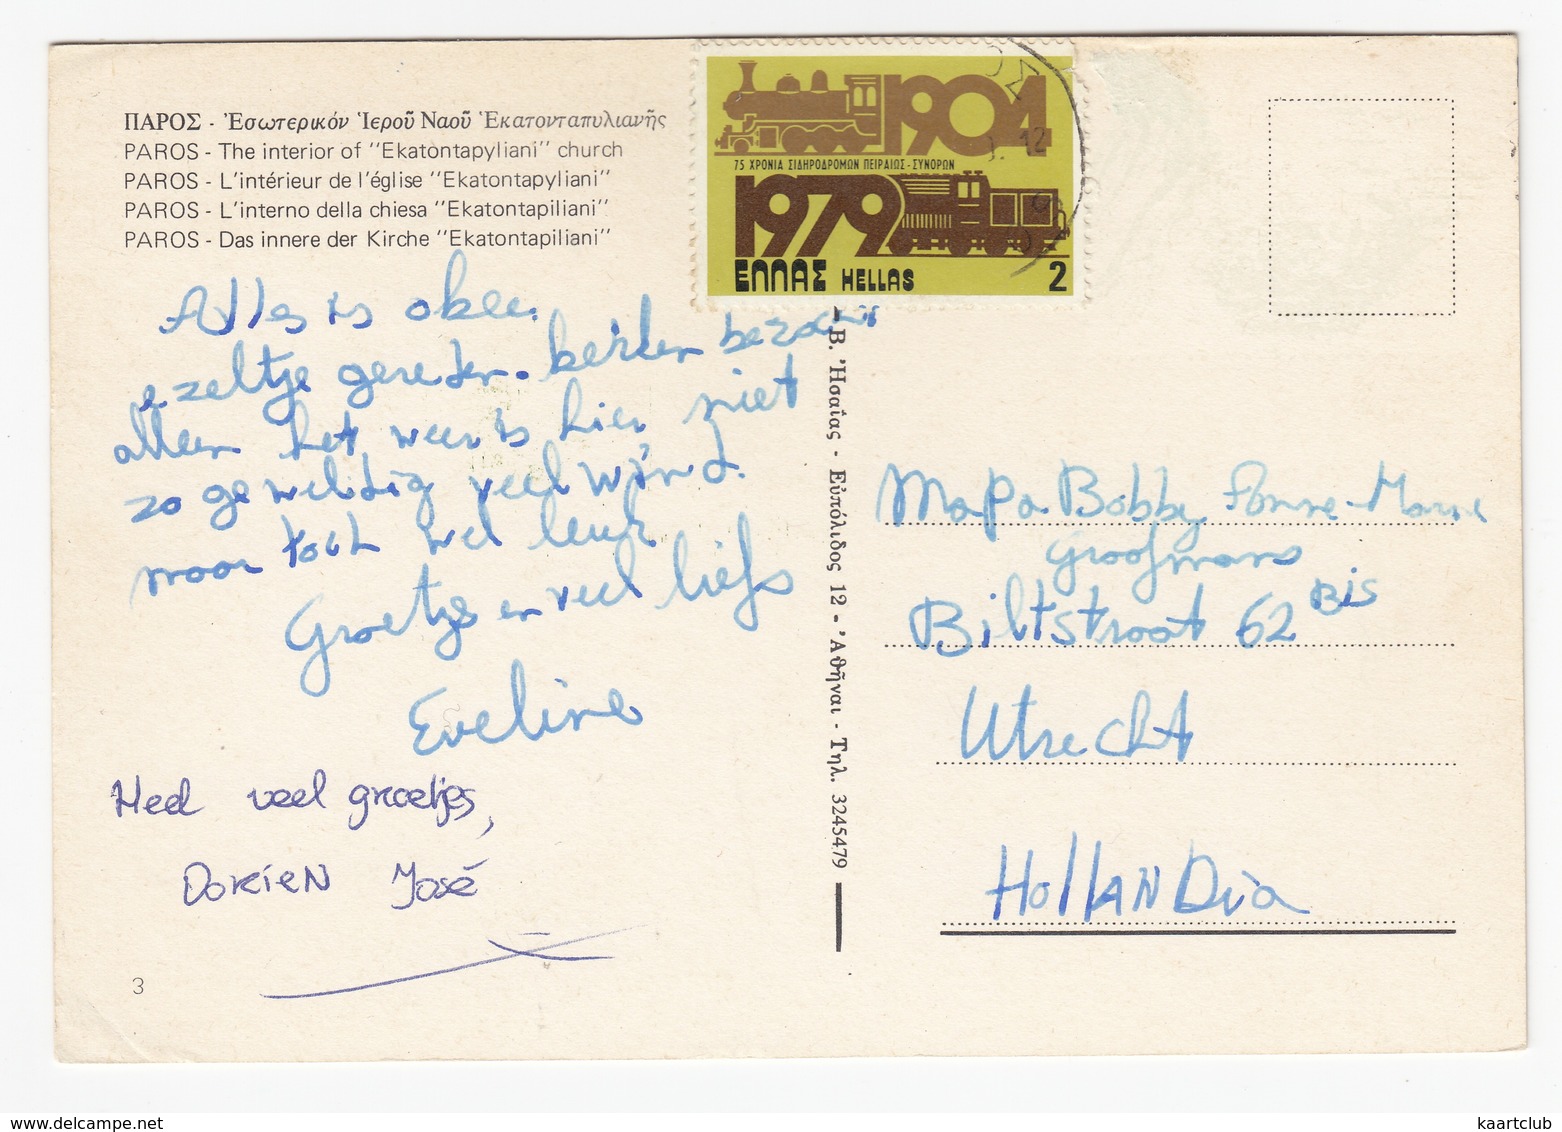 ΠΑΡΟΣ - Ἐσωτερικόν Ἱεροῦ Ναοῦ Ἑκατονταπυλιανῆς
PAROS - The interior of "Ekatontapyliani" church
PAROS - L'intérieur de l'église "Ekatontapyliani"
PAROS - L'interno della chiesa "Ekatontapiliani"
PAROS - Das innere der Kirche "Ekatontapiliani"
1904
75 ΧΡΟΝΙΑ ΣΙΔΗΡΟΔΡΟΜΩΝ ΠΕΙΡΑΙΩΣ-ΣΥΝΟΡΩΝ
1979
ΕΛΛΑΣ HELLAS 2
Alles is okee.
ezeltje gereden. kerken bezocht
alleen het weer is hier niet
zo geweldig veel wind.
maar toch wel leuk
Groetjes en veel liefs
Eveline
Heel veel groetjes,
Dorien José
3
Β. Ἡσαΐας - Εὐπόλιδος 12 - Ἀθῆναι - Τηλ. 3245479
Mapa Bobby
Groofmans
Biltstraat 62 Bis
Utrecht
HollanDia
kaartclub